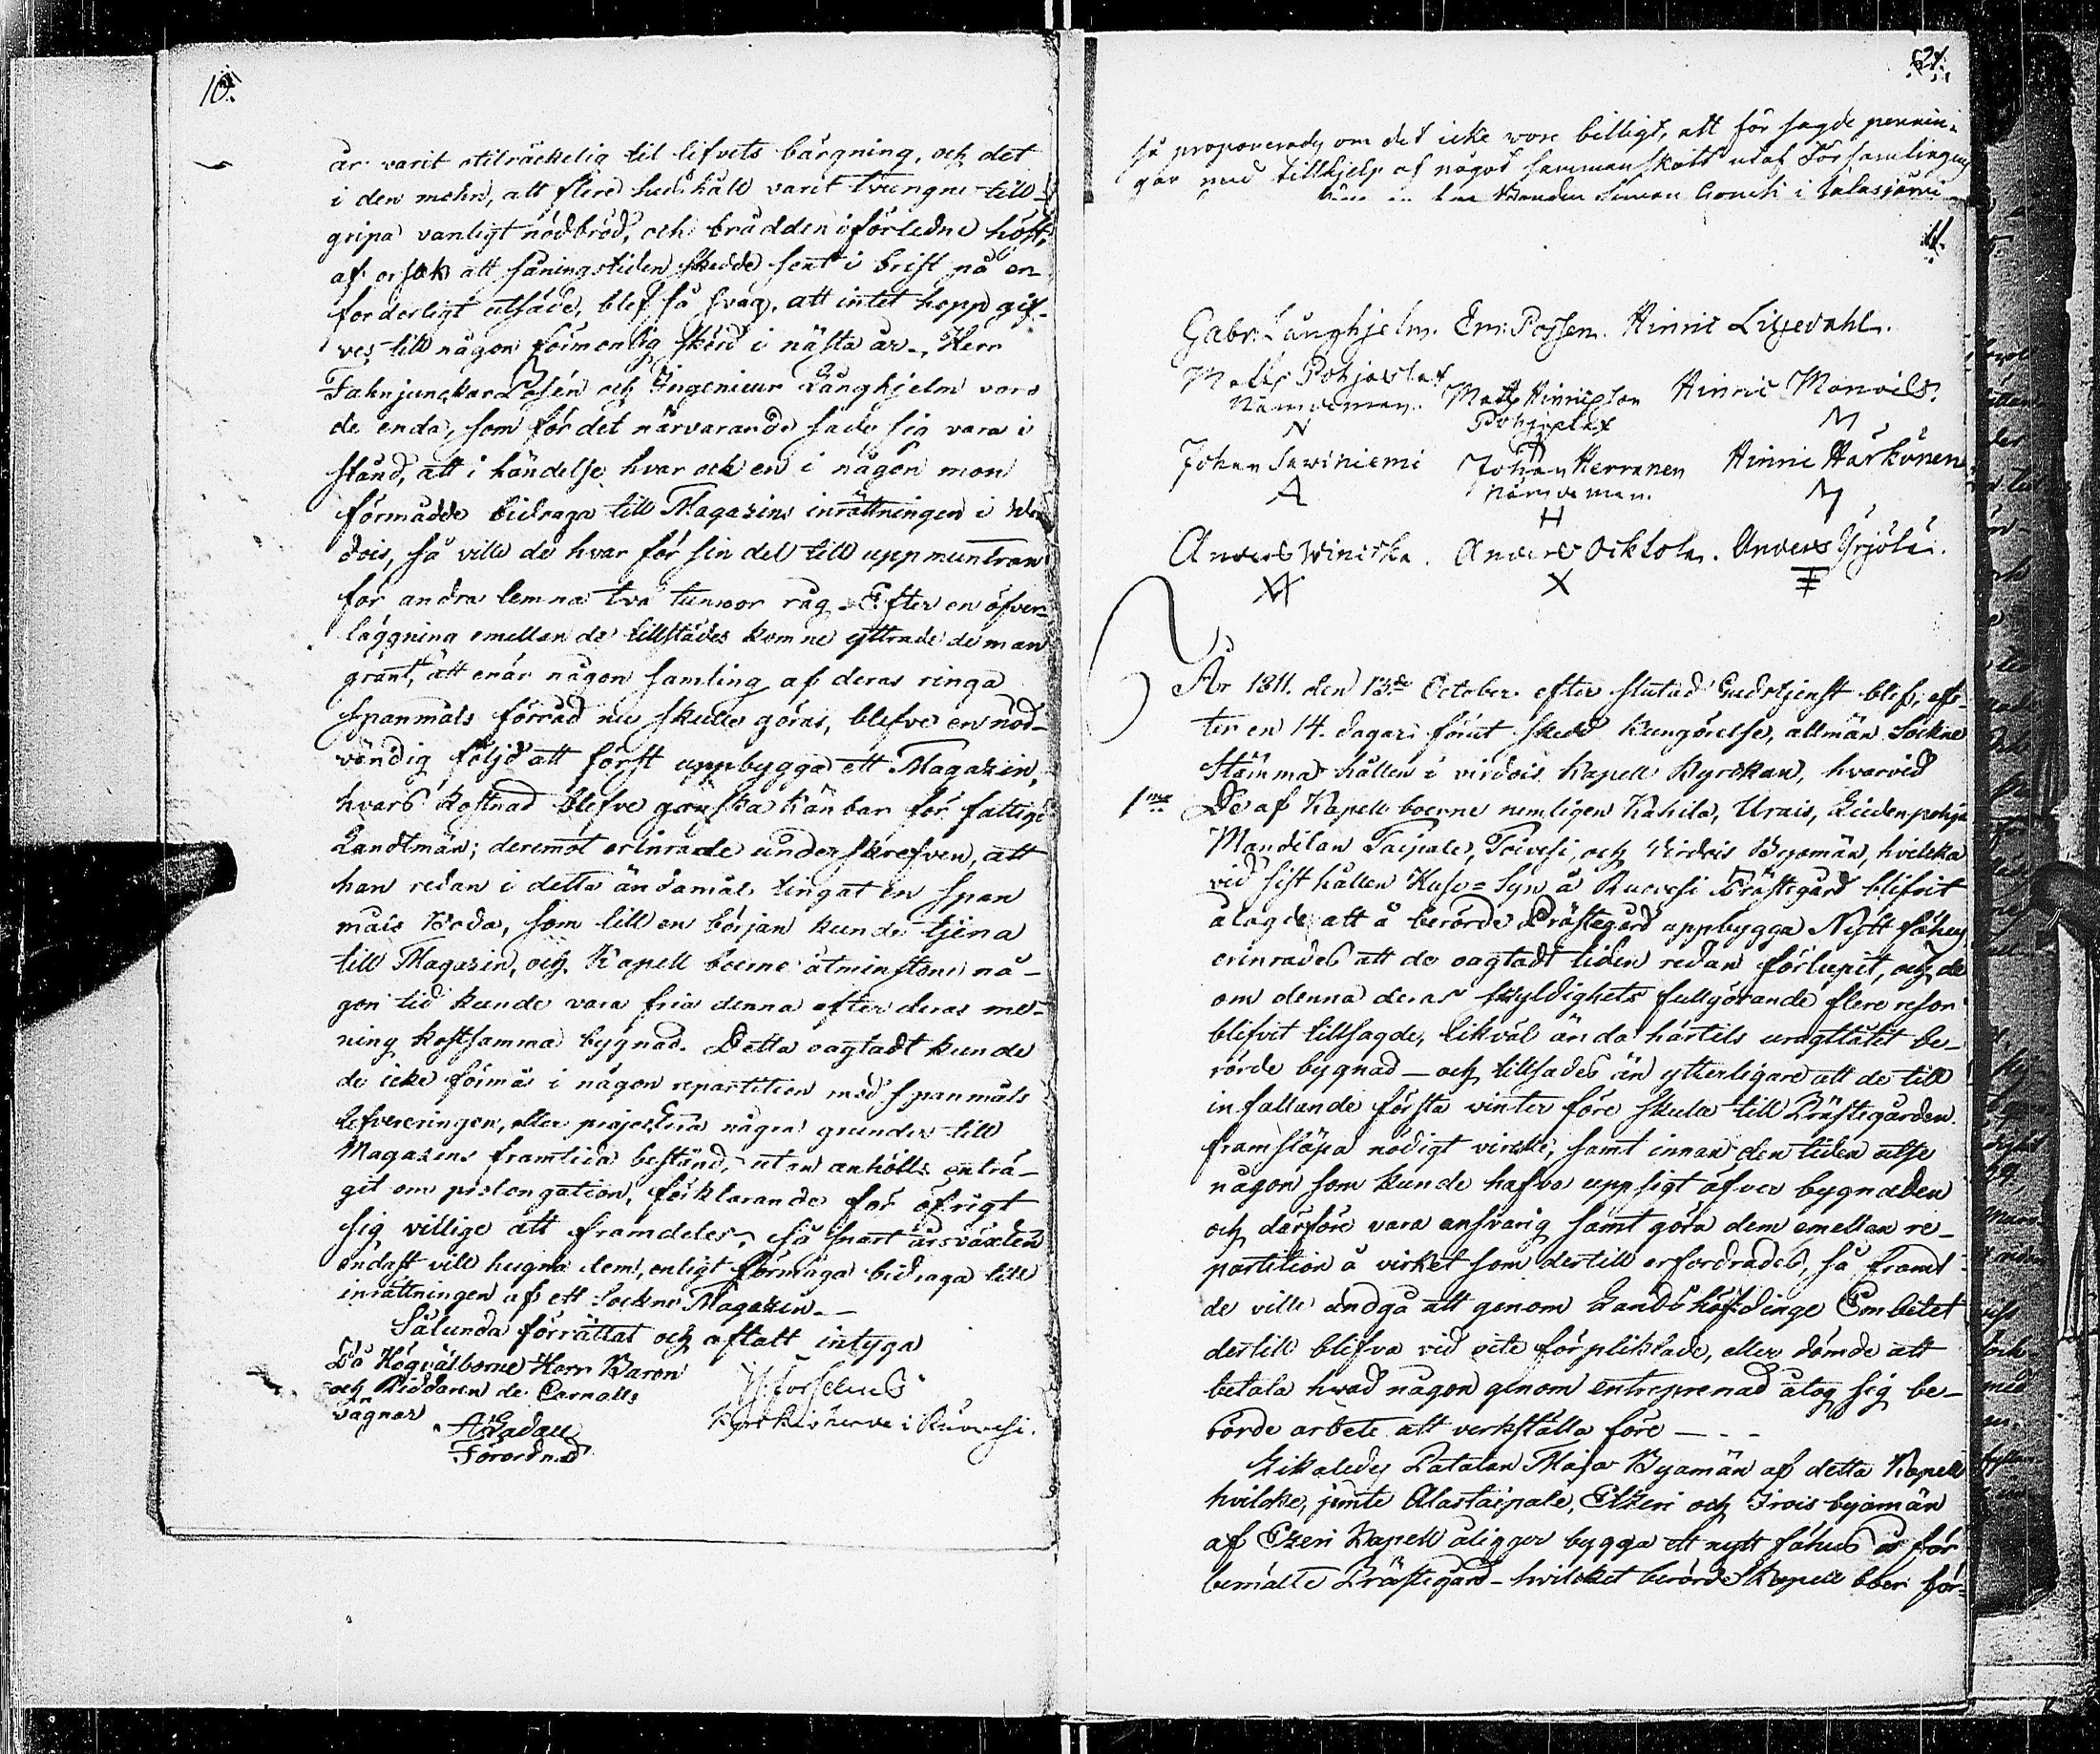 10.
år varit otilräckelig til lifvets bärgning, och det
i den mohn, att flere hushåll varit tvungne till-
gripa vanligt nödbröd, och brådden i förledne höst,
af orsak att såningstiden skedde sent i brist på er-
forderligt utsäde, blef så svag, att intet hopp gif-
ves till någon förmonlig skörd i nästa år. Herr
Fahnjunckar Posén och Ingenieur Långhjelm voro
de enda, som för det närvarande sade sig vara i
stånd, att i händelse hvar och en i någon mon
förmådde bidraga till Magasins inrättningen i Wir
dois, så ville de hvar för sin del till uppmuntran
för andra lemna två tunnor råg. Efter en öfver-
läggning emellan de tillstädes komne yttrade de man
grant, att enär någon samling af deras ringa
spanmåls förråd nu skulle göras, blefve en nöd-
vändig följd att först uppbygga ett Magazin,
hvars kostnad blefve ganska känbar för fattige
Landtmän; deremot erinrade underskrefven, att
han redan i detta ändamål tingat en Span
måls Boda, som till en början kunde tjena
till Magazin, och Kapell boerne åtminstone nå-
gon tid kunde vara fria denna efter deras me-
ning kostsamma bygnad. Detta oagtadt kunde
de icke förmås i någon repartition med spanmåls
lefvereringen, eller projectera några grunder till
Magazins framtida bestånd, utan anhöllo enträ-
git om prolongation, förklarande för öfrigt
sig villige att framdeles, så snart årsväxten
endast vill hugna dem, enligt förmåga bidraga till
inrättningen af ett Sockne Magazin.
Sålunda förrättat och aftalt intyga
På Högvälborne Herr Baron
och Riddaren de Carnalls
vägnar
A Ladau
Förordnad
H: Forselius
Kyrkioherde i Ruovesi.
21.
så proponerades om det icke vore billigt, att för sagde pennin-
gar med tillhjelp af något sammanskott utaf Församlingens
Bonden Simon i Kalasjärvi
11.
Gabr: Långhjelm. Em: Possen. Hinric Liljedahl.
Matts Pohjaslax Matts Hinricsson Hinric Monoils.
Nämndeman. Pohjaslax
N M
Johan Sawiniemi Johan Herranen Hinric Härkönen
A Nämndeman. M
H
Anders Winicka. Anders Ocktola. Anders Yrjölä.
X
År 1811. den 13de October efter slutad Gudstjenst blef, ef-
ter en 14. dagar förut skedd kungörelse, allmän Sockne
Stämma hållen i virdois Kapell Kyrckan, hvarvid
1mo De af Kapell boerne nemligen Kahila, Urais, Liedenpohja
Mandilan Taipale, Toivesi, och Virdois Byamän, hvilcka
vid sist hållen Huse=Syn å Ruovesi Prästegård blifvit
ålagde att å berörde Prästegård uppbygga Nytt fähus
erinrades att de oagtadt tiden redan förlupit, och de
om denna deras skyldighets fullgörande flere resor
blifvit tillsagde, likväl ända härtils uragtlåtit be-
rörde bygnad - och tillsades än ytterligare att de till
infallande första vinter före skula till Prästegården
framsläpa nödigt virke, samt innan den tiden utse
någon som kunde hafva uppsigt öfver bygnaden
och därföre vara ansvarig samt göra dem emellan re-
partition å virket som dertill erfordrades, så framt
de ville undgå att genom Landshöfdinge Embetet
dertill blifva vid vite förpliktade, eller dömde att
betala hvad någon genom entreprenad åtog sig be-
rörde arbete att verkställa före - - -
Likaledes Patalan Maja Byamän af detta Kapell
hvilcke, jemte Alastaipale, Etzeri och Irois byamän
af Etzeri Kapell åligger bygga ett nytt fähus å för
bemälte Prästegård - hvilcket berörde Kapell boer för-